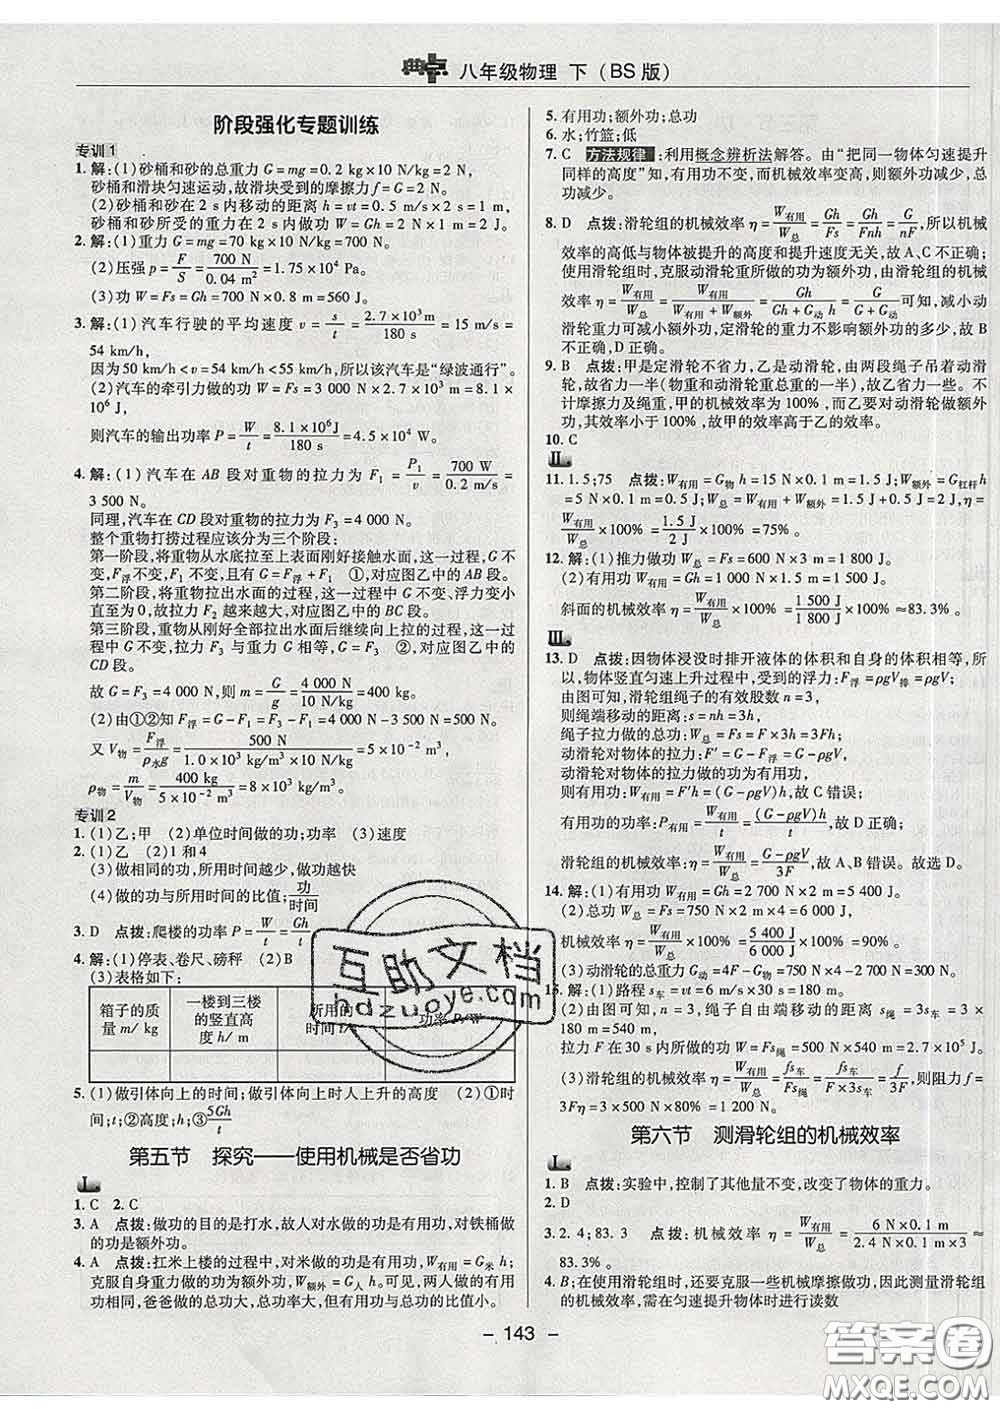 典中点 八年级物理 下(BS版)
阶段强化专题训练
专训1
1. 解:(1)砂桶和砂的总重力 G=mg=0.2 kg×10 N/kg=2 N,
砂桶和滑块匀速运动,故滑块受到的摩擦力 f=G=2 N。
(2)砂桶和砂在 2 s 内移动的距离 h=vt=0.5 m/s×2 s=1 m,
砂桶和砂所受的重力在 2 s 内做功 W=Gh=2 N×1 m=2 J。
2. 解:(1)重力 G=mg=70 kg×10 N/kg=700 N。
(2)压强 p=F/S=700 N/0.04 m²=1.75×10⁴ Pa。
(3)功 W=Fs=Gh=700 N×0.8 m=560 J。
3. 解:(1)汽车行驶的平均速度 v=s/t=2.7×10³ m/180 s=15 m/s=
54 km/h,
因为50 km/h<v=54 km/h<55 km/h,所以该汽车是“绿波通行”。
(2)汽车的牵引力做的功 W=Fs=3 000 N×2.7×10³ m=8.1×
10⁶ J,
则汽车的输出功率 P=W/t=8.1×10⁶ J/180 s=4.5×10⁴ W。
4. 解:(1)汽车在 AB 段对重物的拉力为 F₁=P₁/v=700 W/0.2 m/s=
3 500 N。
同理,汽车在 CD 段对重物的拉力为 F₃=4 000 N。
整个重物打捞过程应该分为三个阶段:
第一阶段,将重物从水底拉至上表面刚好接触水面,这一过程,G 不
变,F浮不变,F₁ 不变,且有 G=F浮+F₁ ①,对应图乙中的AB段。
第二阶段,将重物拉出水面的过程,这一过程中G不变,浮力变小
直至为0,故拉力 F₂ 越来越大,对应图乙中的 BC 段。
第三阶段,重物从刚好全部拉出水面后继续向上拉的过程,这一过
程中 G 不变,拉力 F₃ 与重力 G 相等,G=F₃ ②,对应图乙中的
CD 段。
故 G=F₃=4 000 N,则 m=G/g=4 000 N/10 N/kg=400 kg。
(2)由①②知 F浮=G-F₁=F₃-F₁=4 000 N-3 500 N=500 N。
又 V物=F浮/ρ水g=500 N/1×10³ kg/m³×10 N/kg=5×10⁻² m³,
ρ物=m/V物=400 kg/5×10⁻² m³=8×10³ kg/m³。
专训2
1. (1)乙;甲 (2)单位时间做的功;功率 (3)速度
2. (1)乙 (2)1和4
(3)做相同的功,所用时间越少,做功越快
(4)做的功与所用时间的比值;功/时间
3. D 点拨:爬楼的功率 P=W/t=Gh/t。
4. 解:(1)停表、卷尺、磅秤 (2)B
(3)表格如下:
箱子的质量 m/ kg 一楼到三楼的竖直高度 h/ m 所用的时间 t/ s 功率 P/W
5. (1)做引体向上的时间;做引体向上时人上升的高度 (2)①时
间;t;②高度;h;③5Gh/t
第五节 探究——使用机械是否省功
Ⅰ.
1. C 2. C
3. A 点拨:做功的目的是打水,故人对水做的功是有用功,对铁桶做
的功是额外功。
4. A 点拨:扛米上楼的过程中,对米做的功是有用功,W有用=G米 h;
克服自身重力做的功为额外功,W额外=G人 h。可见,两人做的有用
功相同,爸爸做的总功大,总功率大,但有用功与总功的比值小。
5. 有用功;额外功;总功
6. 水;竹篮;低
7. C 方法规律:利用概念辨析法解答。由“把同一物体匀速提升
同样的高度”知,有用功不变,而机械效率变高,则额外功减少,总
功减少。
8. D 点拨:滑轮组的机械效率 η=W有用/W总=Gh/Fs=Gh/Fnh=G/nF,所以机械
效率的高低与物体被提升的高度和提升速度无关,故 A、C 不正确;
使用滑轮组时,克服动滑轮重所做的功为额外功,由滑轮组的机械
效率 η=W有用/W总=W有用/W有用+W额外=Gh/Gh+G动 h=G/G+G动可知,减小动
滑轮重力可减小额外功,定滑轮的重力不影响额外功的多少,故 B
不正确,D正确。
9. B 点拨:甲是定滑轮不省力,乙是动滑轮,由两段绳子吊着动滑
轮,故省力一半(物重和动滑轮重总重的一半),故乙省力一些。不
计摩擦力及绳重,甲的机械效率为 100%,而乙要对动滑轮做额外
功,其效率小于100%,故甲的效率高于乙的效率。
10. C
Ⅱ.
11. 1.5;75 点拨:W有用=G物 h=15 N×0.1 m=1.5 J;W额外=G杠杆h
=5 N×0.1 m=0.5 J;W总=W有用+W额外=1.5 J+0.5 J=2 J,η=
W有用/W总×100%=1.5 J/2 J×100%=75%。
12. 解:(1)推力做功 W总=Fs=600 N×3 m=1 800 J。
(2)有用功 W有用=Gh=1 000 N×1.5 m=1 500 J。
斜面的机械效率 η=W有用/W总×100%=1 500 J/1 800 J×100%≈83.3%。
Ⅲ.
13. D 点拨:因物体浸没时排开液体的体积和自身的体积相等,所
以,物体竖直匀速上升过程中,受到的浮力:F浮=ρgV排=ρgV;
由图可知,滑轮组绳子的有效股数 n=3,
则绳端移动的距离:s=nh=3h,
绳子拉力做的总功:W总=Fs=F×3h=3Fh;
动滑轮对物体的拉力:F′=G-F浮=G-ρgV,
动滑轮对物体的拉力做的功为有用功:
则有用功:W有用=F′h=(G-ρgV)h,故C错误;
有用功的功率:P有用=W有用/t=(G-ρgV)h/t,故D正确;
滑轮组的机械效率:η=W有用/W总=G-ρgV/3F,故A、B错误。故选D。
14. 解:(1)有用功 W有用=Gh=2 700 N×2 m=5 400 J。
(2)总功 W总=Fs=750 N×2 m×4=6 000 J,
机械效率 η=W有用/W总×100%=5 400 J/6 000 J×100%=90%。
(3)动滑轮的总重力 G动=4F-G物=4×750 N-2 700 N=300 N。
15. 解:(1)路程 s车=vt=6 m/s×30 s=180 m。
(2)由图可知,n=3,绳子自由端移动的距离 s绳=3s车=3×
180 m=540 m,
拉力 F 在 30 s 内所做的功 W=Fs绳=500 N×540 m=2.7×10⁵ J。
(3)滑轮组的机械效率 η=W有用/W总=fs车/Fs绳=fs车/F×3s车=f/3F,则阻力 f=
3Fη=3×500 N×80%=1 200 N。
第六节 测滑轮组的机械效率
Ⅰ.
1. B 点拨:实验中,控制了其他量不变,改变了物体的重力。
2. D
3. 2.4;83.3 点拨:机械效率 η=W有用/W总=6 N×0.1 m/2.4 N×0.1 m×3≈
83.3%。
4. B;在使用滑轮组时,还要克服一些机械摩擦做功,因此测量滑轮组
的机械效率,需在匀速提升物体时进行读数
- 143 -
互助文档
hdzuoye.com
答案圈
MXQE.COM